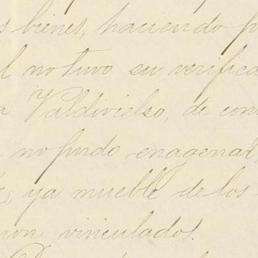 s bienes, haciendo p
l no tuvo su verifica
a Valdivielso, de con
no pudo enagenar
ya mueble de los
ion vinculados.